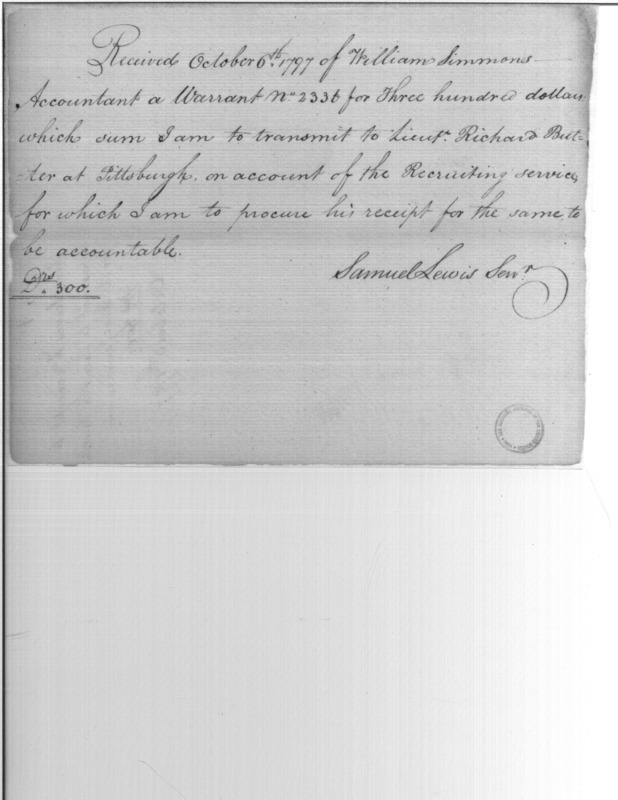 Received October 6th. 1797 of William Simmons
Accountant a Warrant No 2336 for Three hundred dollars
which sum I am to transmit to Lieut. Richard But-
-ler at Pittsburgh, on account of the Recruiting service,
for which I am to procure his receipt for the same, to
be accountable.
Samuel Lewis Senr.
Drs. 300.